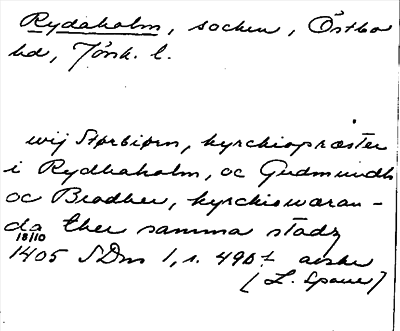 Rydaholm, socken, Östbo
hd, Jönk. l.
wij Størbiørn, kyrchiopræster
i Rydhaholm, oc Gudmundh
oc Brodher, kyrchiowæran-
da ther samma stadz
18/10
1405 SDns 1, s. 490 f. avskr
[L. Sparre]